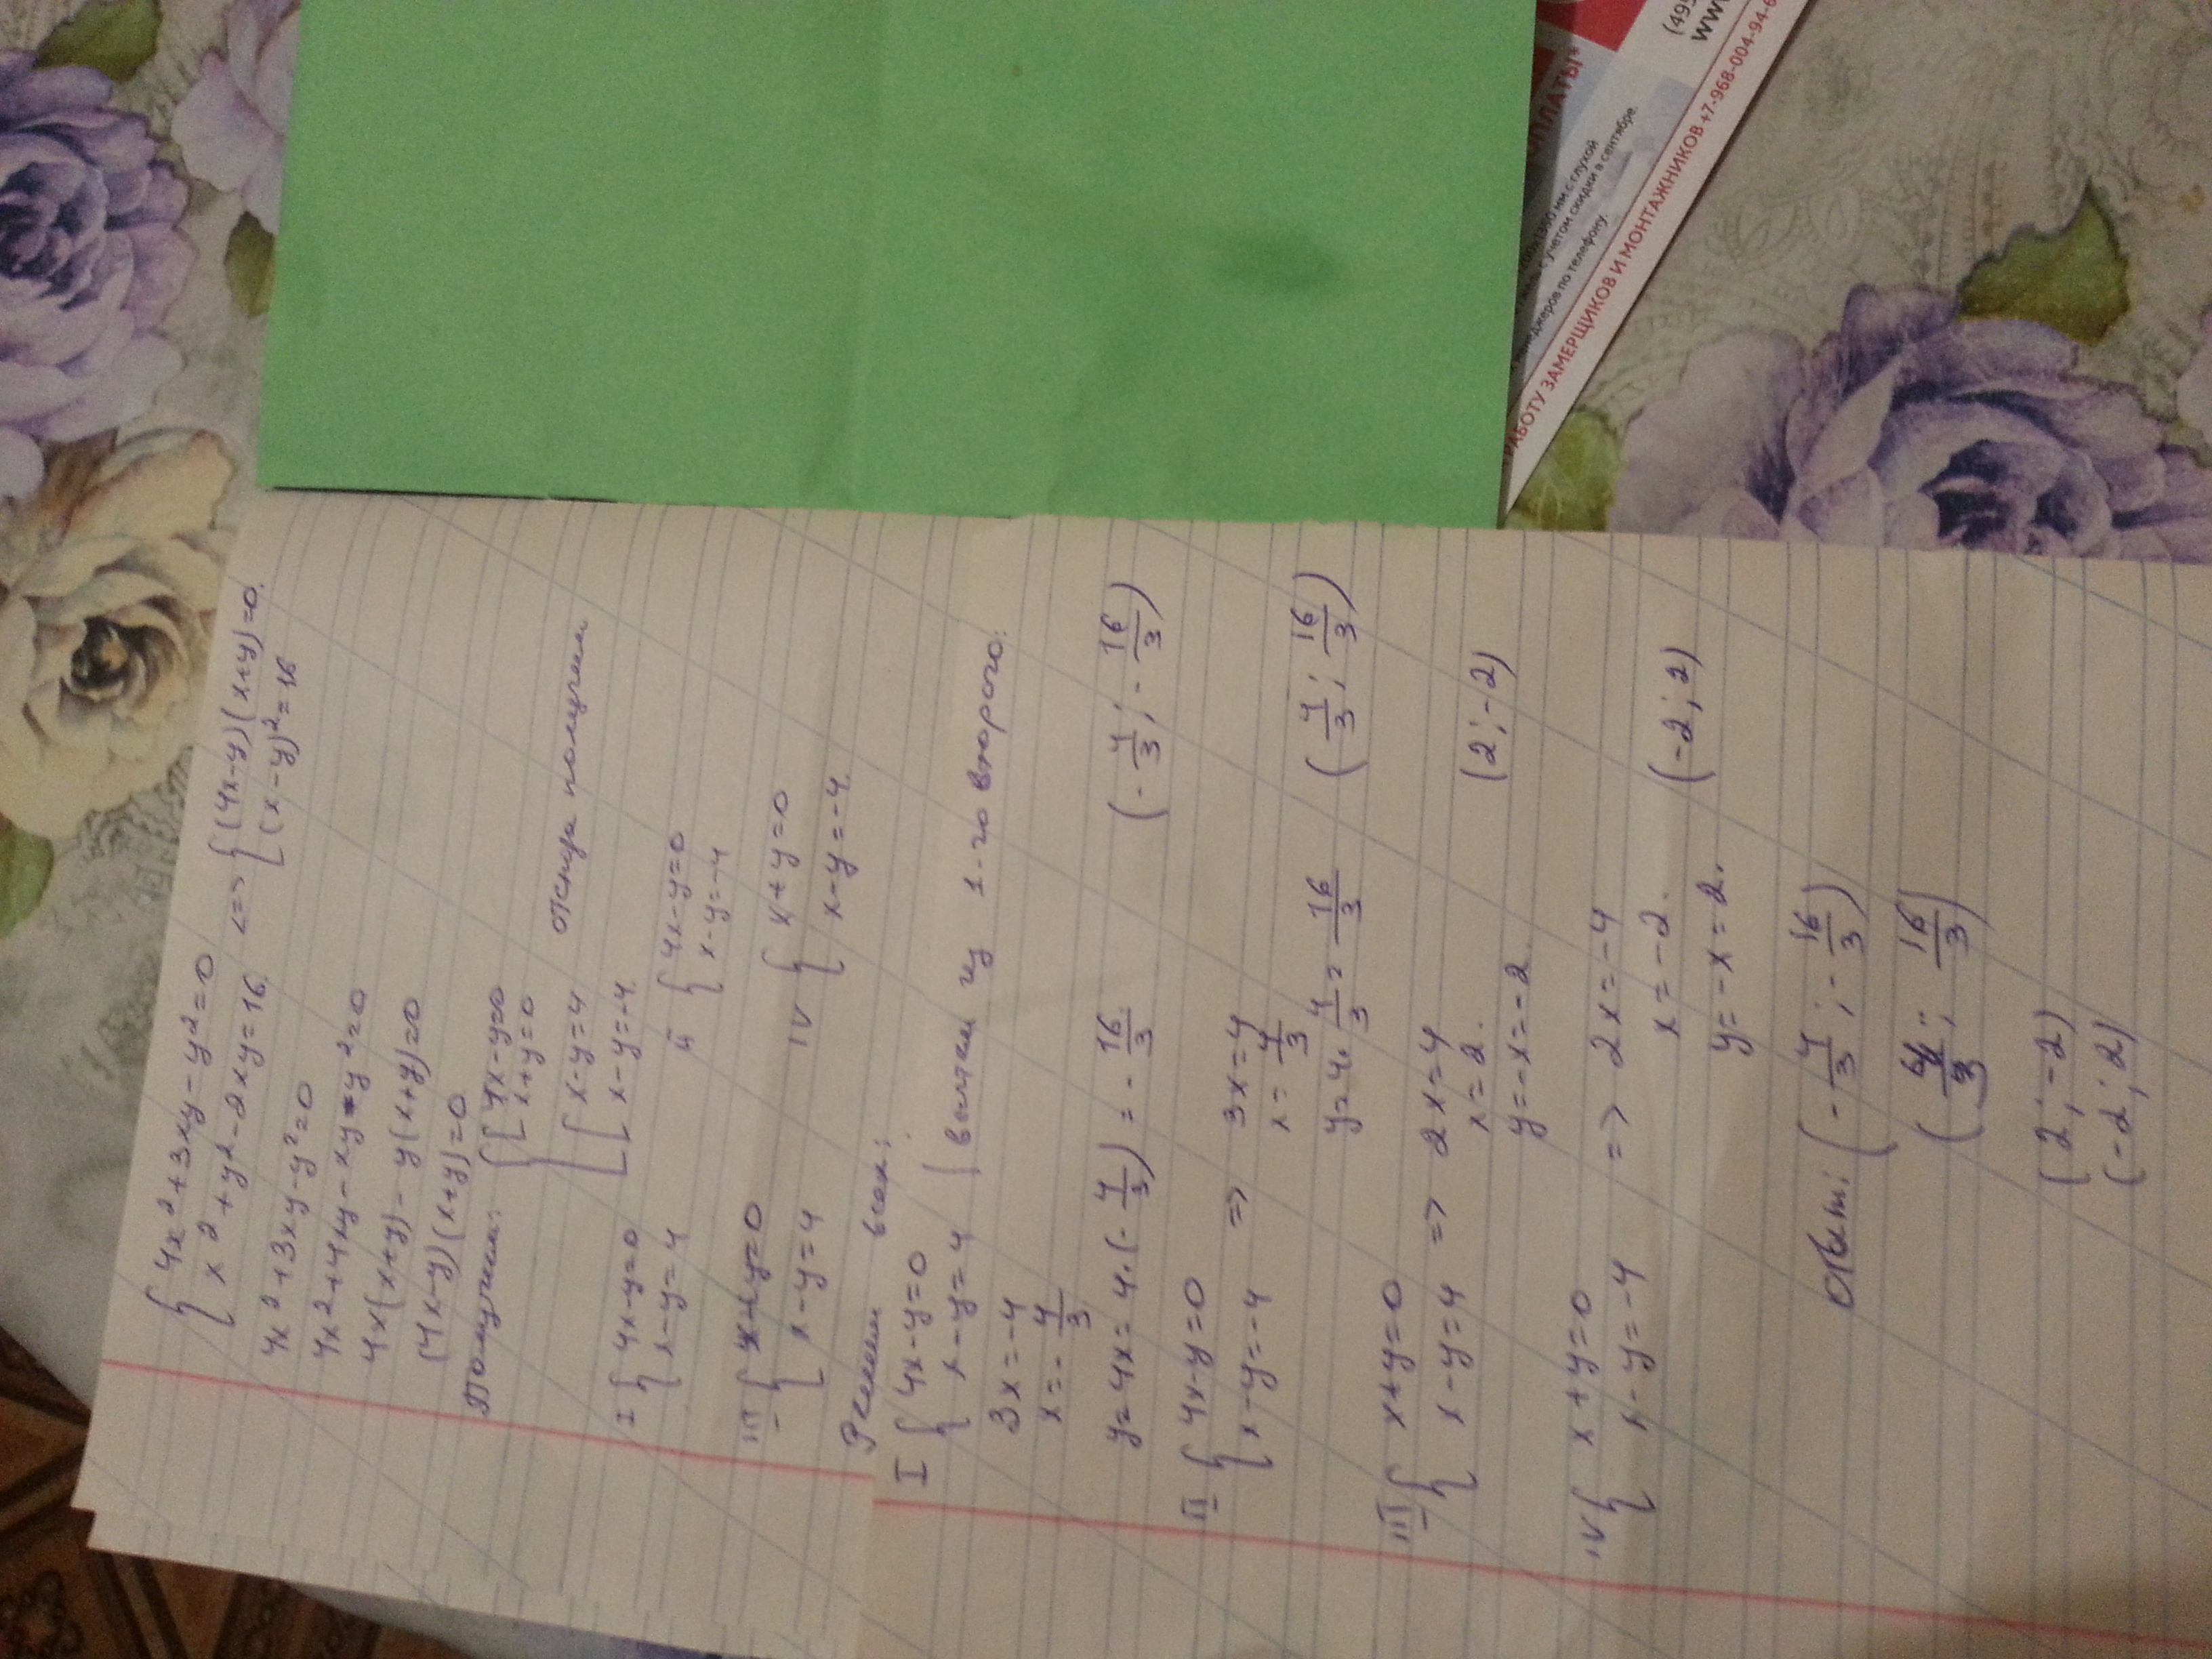 { 4x²+3xy-y²=0 <=> { (4x-y)(x+y)=0.
x²+y²-2xy=16. (x-y)²=16
4x²+3xy-y²=0
4x²+4xy-xy-y²=0
4x(x+y)-y(x+y)=0
(4x-y)(x+y)=0.
Получим: { [ 4x-y=0
x+y=0
[ x-y=4
x-y=-4.
отсюда получим
I { 4x-y=0
x-y=4
II { 4x-y=0
x-y=-4
III { x+y=0
x-y=4
IV { x+y=0
x-y=-4.
Решим все:
I { 4x-y=0
x-y=4 | вычтем из 1-го второго:
3x=-4
x=-4/3
y=4x=4·(-4/3)=-16/3 (-4/3; -16/3)
II { 4x-y=0
x-y=-4 => 3x=4
x=4/3
y=4·4/3=16/3 (4/3; 16/3)
III { x+y=0
x-y=4 => 2x=4
x=2.
y=-x=-2. (2;-2)
IV { x+y=0
x-y=-4 => 2x=-4
x=-2.
y=-x=2. (-2;2)
Ответ: (-4/3; -16/3)
(4/3; 16/3)
(2;-2)
(-2;2)
(495
WWW
ПЛАТЫ*
мм с глухой
с учетом скидки в сентябре.
по телефону.
РАБОТУ ЗАМЕРЩИКОВ И МОНТАЖНИКОВ +7-968-004-94-6